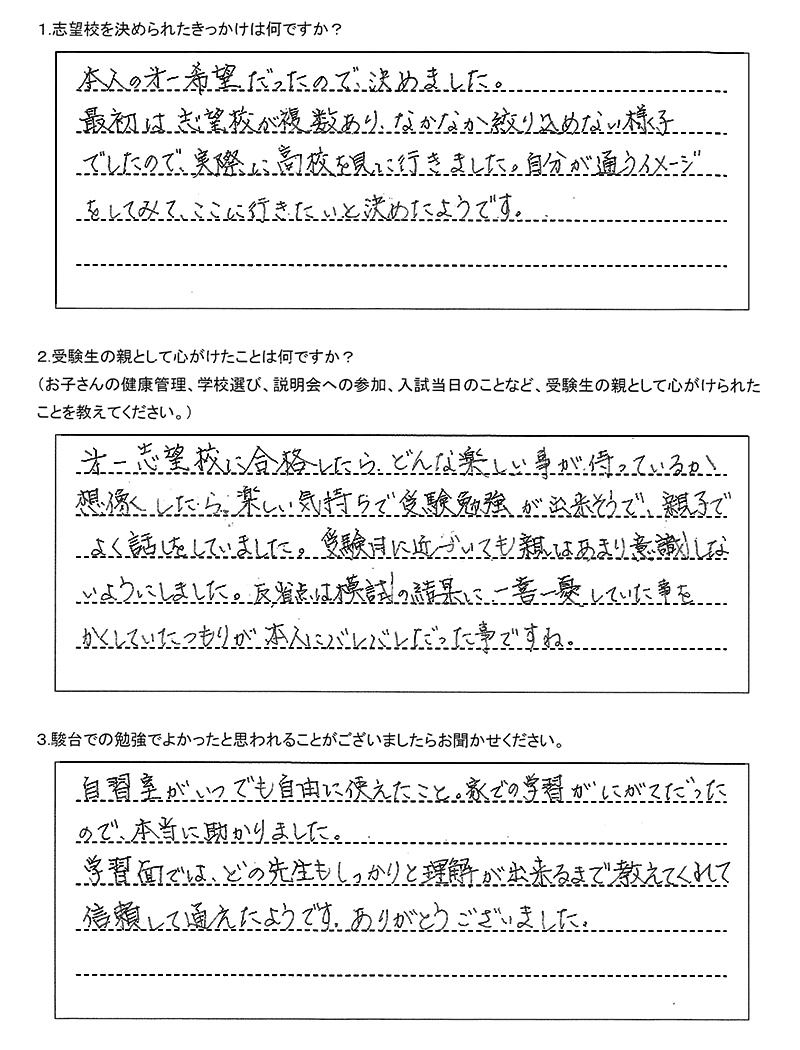 1.志望校を決められたきっかけは何ですか？
本人の㐧一希望だったので、決めました。
最初は志望校が複数あり、なかなか絞り込めない様子
でしたので、実際に高校を見に行きました。自分が通うイメージ
をしてみて、ここに行きたいと決めたようです。
2.受験生の親として心がけたことは何ですか？
（お子さんの健康管理、学校選び、説明会への参加、入試当日のことなど、受験生の親として心がけられた
ことを教えてください。）
㐧一志望校に合格したら、どんな楽しい事が待っているか、
想像したら、楽しい気持ちで受験勉強が出来そうで、親子で
よく話しをしていました。受験日に近づいても親はあまり意識しな
いようにしました。反省点は模試の結果に一喜一憂していた事を
かくしていたつもりが本人にバレバレだった事ですね。
3.駿台での勉強でよかったと思われることがございましたらお聞かせください。
自習室がいつでも自由に使えたこと。家での学習がにがてだった
ので、本当に助かりました。
学習面では、どの先生もしっかりと理解が出来るまで教えてくれて
信頼して通えたようです。ありがとうございました。